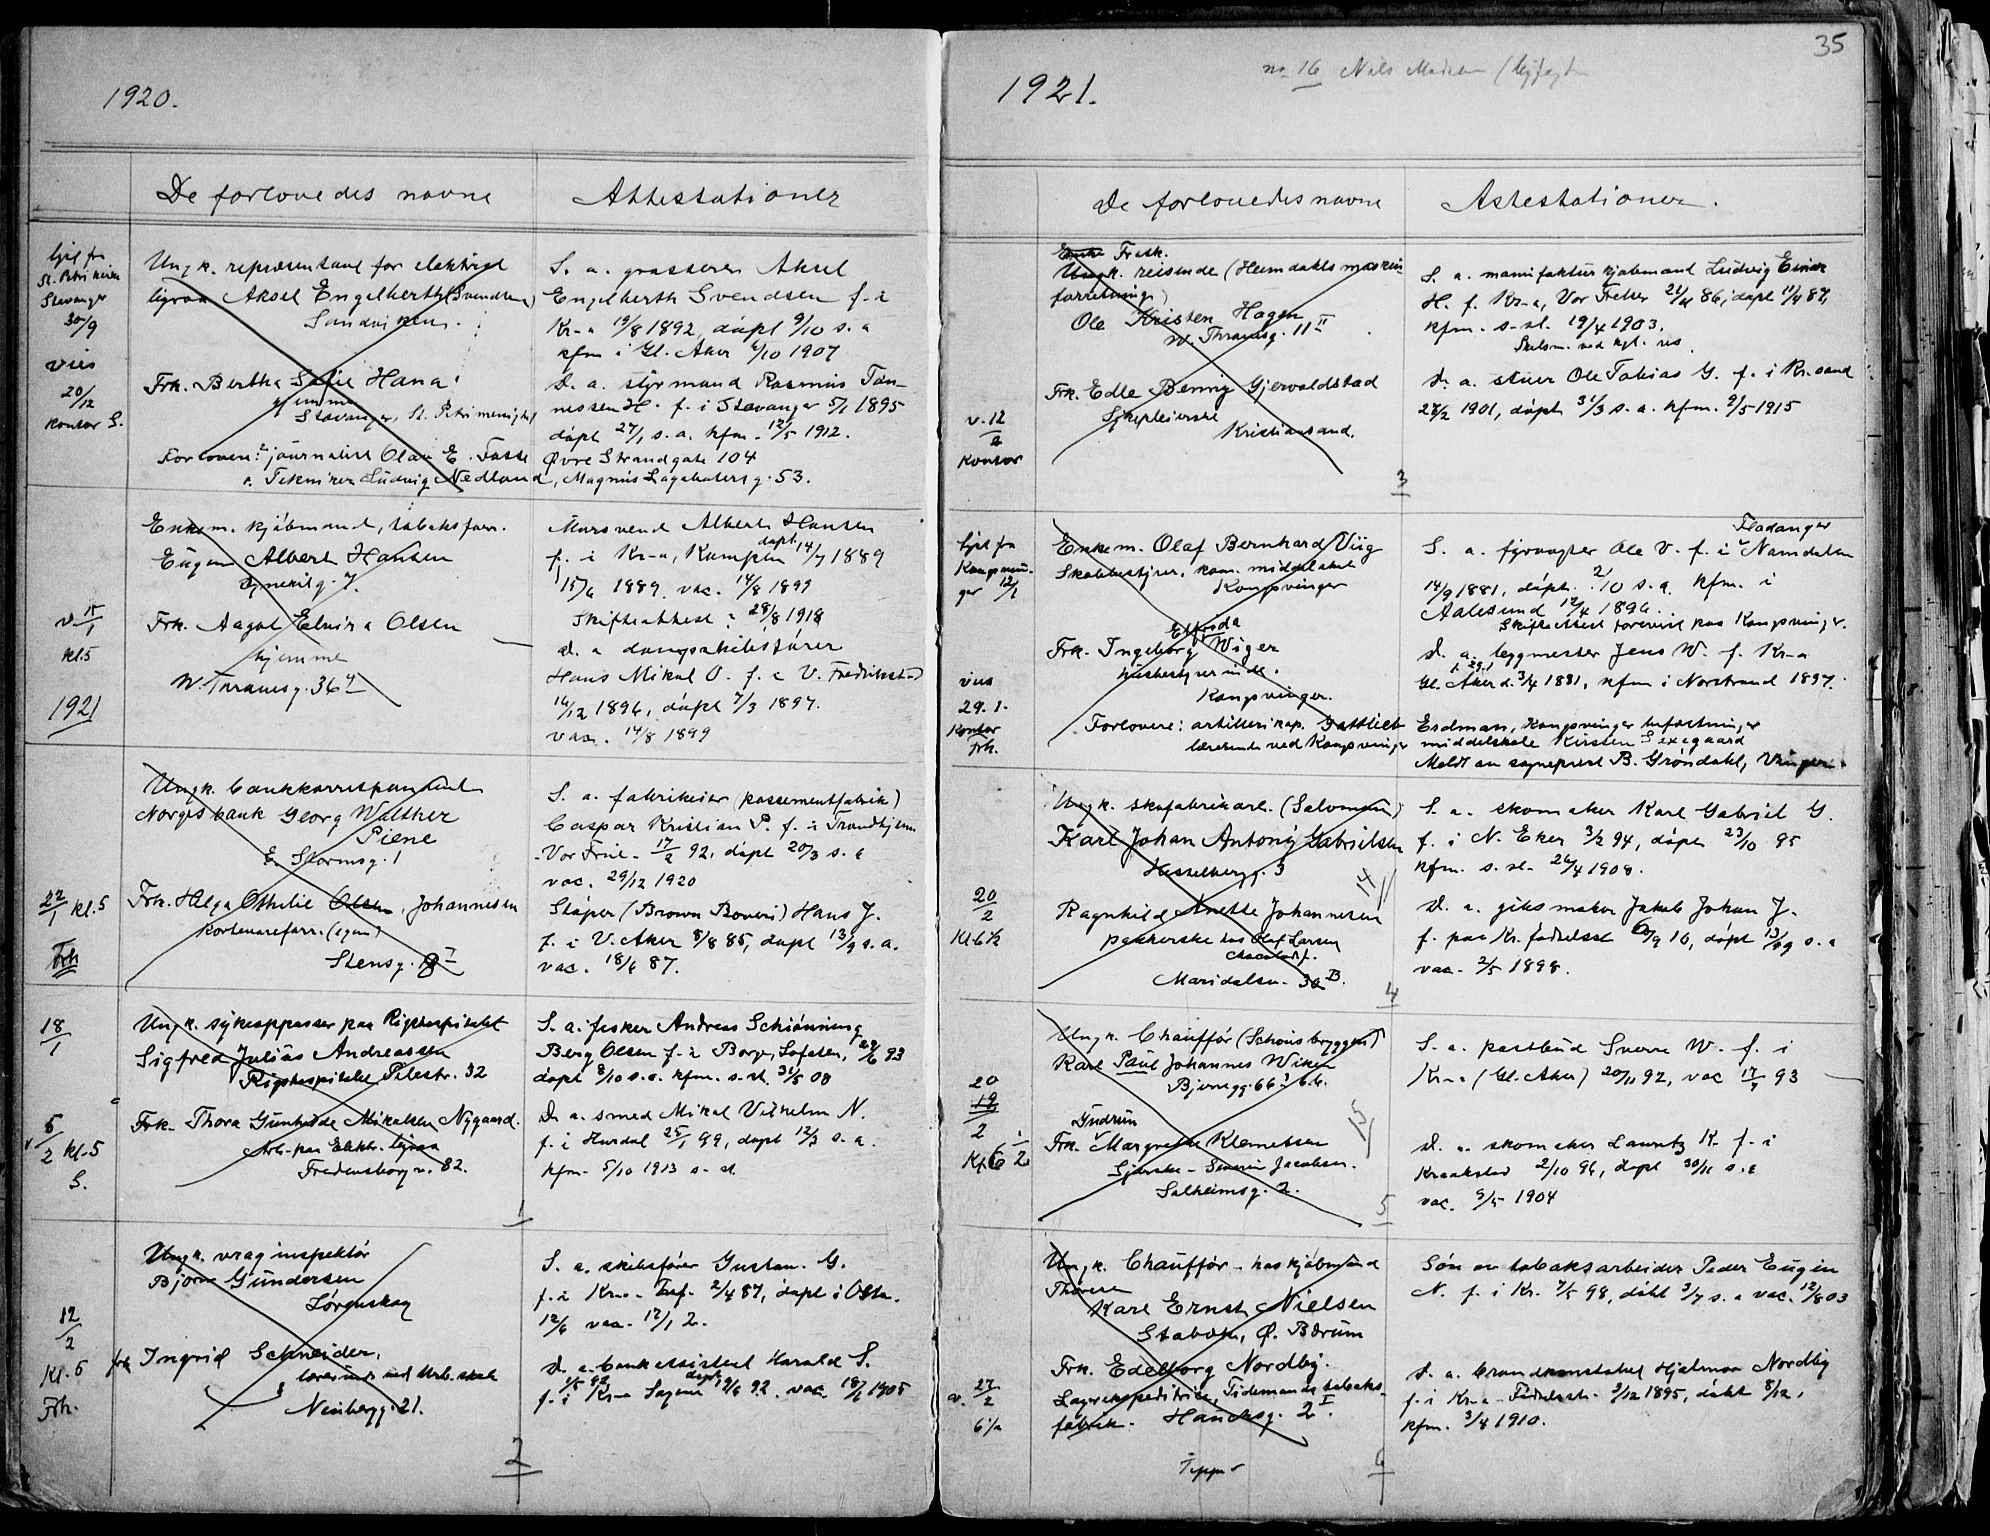 1920.
De forlovedes navne
Attestationer
lyst fra
St. Petri
Stavanger
30/9
vies
20/12
Kontor S.
Ungk. repræsentant for elektrisk
Aksel Engelberth (Svendsen)
Sandviken.
Frk. Bertha Sofie Hana
hjemme
Stavanger, St. Petri menighed
Forlovere: journalist Olav E. Fosse
Ludvig Nedland
S. a. grosserer Aksel
Engelberth Svendsen f. i
Kr-a 19/8 1892, døpt 9/10 s. a
kfm i Gl. Aker 6/10 1907
D. a. styrmand Rasmus Tøn-
nessen H. f. i Stavanger 5/1 1895
døpt 27/1 s. a. kfm. 12/5 1912.
Øvre Strandgate 104
Magnus Lagabøtersg. 53.
v. 15/1
kl. 5
1921
Enkem. kjøbmand, tobaksforr.
Eugen Albert Hansen
Dynekilg. 7.
Frk. Aagot Elvira Olsen
hjemme
W. Thranesg. 36
Mursvend Albert Hansen
f. i Kr-a, Kampen døpt 14/7 1889
15/6 1889. vac. 14/8 1899
Skifteattest: 28/8 1918
d. a dampskibsfører
Hans Mikal O. f. i V. Fredrikstad
16/12 1896, døpt 7/3 1897.
vac. 14/8 1899
22/1 kl. 5
Frk
Ungk. bankkorrespondent
Norges bank Georg Walther
Piene
E. Stormsg. 1
Frk. Helga Othilie Olsen, Johannesen
Kortevareforr. (egen)
Stensg.
S. a. fabrikeier (possementfabrik)
Caspar Kristian P. f. i Trondhjem
Vor Frue 17/2 92, døpt 20/3 s. a
vac. 29/12 1920
Støper (Brown Boveri) Hans J.
f. i V. Aker 8/8 85, døpt 13/9 s. a.
vac. 18/6 87.
18/1
5/2 kl. 5
S.
Ungk. sykeoppasser paa Rigshospitalet
Sigfred Julius Andreassen
Rigshospitalet Pilestr. 32
Frk. Thora Gunhilde Mikalsen Nygaard.
Arb. paa Elektr.
Fredensborgv. 82.
S. a. fisker Andreas Schiønning
Berg Olsen f. i Borge, Lofoten, 29/6 93
døpt 8/10 s. a. kfm. s. st. 31/5 08
D. a. smed Mikal Vilhelm N.
f. i Hurdal 25/1 99, døpt 12/3 s. a.
kfm. 5/10 1913 s. st.
1
12/2
Kl. 5
Frk.
Ungk. vraginspektør
Bjorne Gundersen
Lørenskog
frk Ingrid Schneider,
lærerinde ved
Neubergg. 21.
S. a. skibsfører Gustav. G.
f. i Kr-a Tref. 2/4 87, døpt i Oslo.
12/6 vac. 12/1 2.
D. a. bankassistent Harald S.
1/5 92
f. i Kr-a Sagene døpt 19/6 92. vac. 18/6 1905
2
35
no 16 Nils
1921.
De forlovedes navne
Attestationer.
v. 12/2
Kontor
Enke Frask.
Ungk. reisende (Heimdahls maskin
forretning)
Ole Kristen Hagen
W. Thranesg. 11 II
Frk. Edle Benny Gjervoldstad
Sykepleierske
Kristiansand.
S. a. manufakturkjøbmand Ludvig Einar
H. f. Kr-a, Vor Frelser 21/11 86, døpt 11/4 87,
kfm. s. st. 19/4 1903.
Skilsm. ved kgl. res.
D. a. stuer Ole Tobias G. f. i Kr.sand
28/2 1901, døpt 31/3 s. a. kfm. 9/5 1915
3
lyst fra
Kongsvin-
ger 12/1
vies
29. 1.
Kontor
Frk.
Enkem. Olaf Bernhard Viig
Skolebestyrer, kom. middelskole
Kongsvinger
Elfrida
Frk. Ingeborg Wiger
husbestyrerinde.
Kongsvinger.
Forlovere: artillerikap. Gottlieb
lærerinde ved Kongsvinger
Fladanger
S. a. fyrvogter Ole V. f. i Namdalen
14/9 1881, døpt 2/10 s. a. kfm. i
Aalesund 12/4 1896.
Skifteattest forevist paa Kongsvinger.
D. a. byggmester Jens W. f. Kr-a
Gl. Aker d. 3/4 1881, kfm i Nordstrand 1897.
Erdman, Kongsvinger befæstninger
middelskole Kirsten Sexegaard
Meldt av sogneprest B. Grøndahl, Vinger.
20/2
Kl. 6 1/2
Ungk. skofabrikarb. (Salomon)
Karl Johan Antony Gabrielsen
Hesselbergg. 3
Ragnhild Anette Johannesen
pakkerske hos Olaf Larsen
chocoladef.
Maridalsv. 30 B.
14
S. a. skomaker Karl Gabriel G.
f. i N. Eker 3/2 94, døpt 23/10 95
kfm. s. st. 26/4 1908.
D. a. gibsmaker Jakob Johan J.
f. paa Kr. fødselsst
vac. 2/5 1898.
4
20
19
2
Kl. 6
Ungk. Chauffør (Schous bryggeri)
Karl Paul Johannes Wiken
Bjerregg. 66
Gudrun
Frk. Margrethe Klemetsen
Syerske - Severin Jacobsen.
Solheimsg. 2.
15
S. a. postbud Sverre W. f. i
Kr-a (Gl. Aker) 20/11 92, vac 17/7 93
D. a. skomaker Lauritz K. f. i
Kraakstad 2/10 96, døpt 30/11 s. a
vac. 9/5 1904
5
v. 27/2
6 1/2
Ungk. Chauffør hos kjøbmand
Thoresen
Karl Ernst Nielsen
Stabæk, Ø. Bærum
Frk. Edelborg Nordby.
Lagerekspeditrice, Tidemands tobaks-
fabrik. Hauchsg. 2 I.
Søn av tobaksarbeider Peder Eugen
N. f. i Kr. 7/5 98, døbt 3/7 s. a vac. 12/8 03
D. a. brandkonstabel Hjalmar Nordby
f. i Kr-a Fødselsst. 3/12 1895, døbt 8/12,
kfm. 3/4 1910.
6